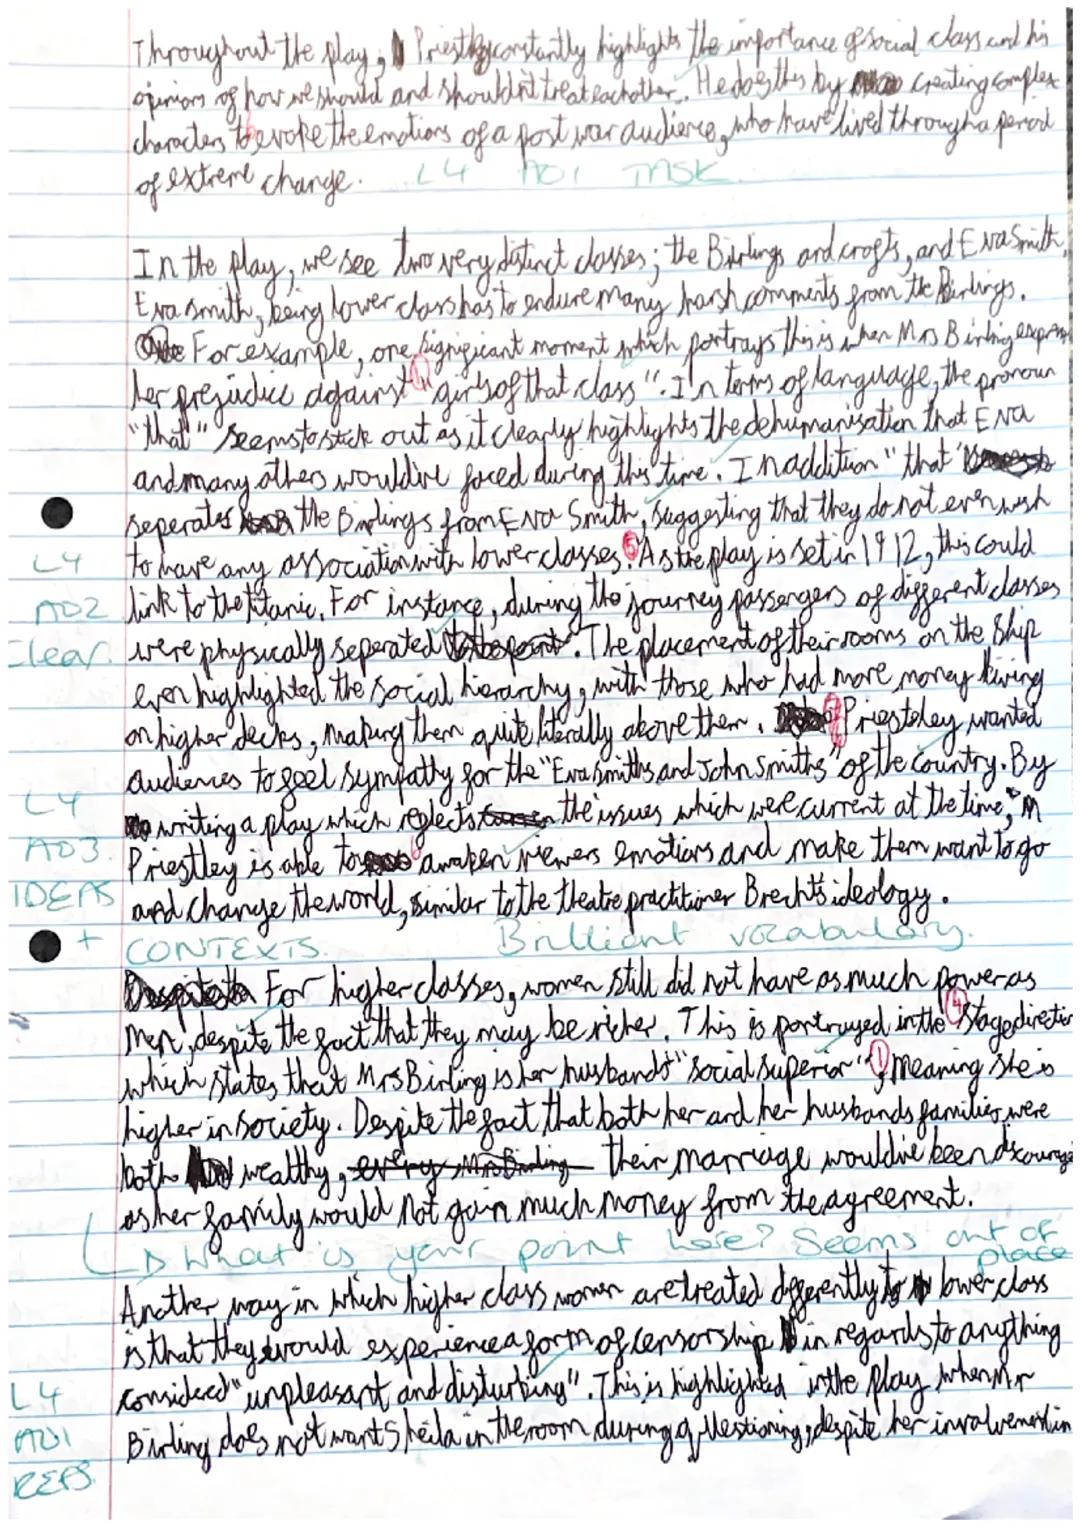 Throughout the play, Priestley constantly highlights the importance of social class and his
opinions of how we should and shouldn't treat eachother. He does this by creating complex
characters to evoke the emotions of a post war audience, who have lived through a period
of extreme change. L4 AO1 TASK
In the play, we see two very distinct classes; the Birlings and crofts, and Eva Smith.
Eva smith, being lower class has to endure many harsh comments from the Birlings.
For example, one significant moment which portrays this is when Mrs Birling
her prejudice against "girls of that class". In terms of language, the pronoun
"that" seems to stick out as it clearly highlights the dehumanisation that Eva
and many others would've faced during this time. In addition "that"
seperates the Birlings from Eva Smith, suggesting that they do not even wish
to have any association with lower classes. As the play is set in 1912, this could
L4
link to the titanic. For instance, during the journey passengers of different classes
AO2
were physically seperated. The placement of their rooms on the ship
clear
even highlighted the social hierarchy, with those who had more money living
on higher decks, making them quite literally above them. Priestley wanted
audiences to feel sympathy for the "Eva smiths and John Smiths" of the country. By
L4
writing a play which reflects the issues which were current at the time,
AO3
Priestley is able to awaken viewers emotions and make them want to go
IDEAS
and change the world, similar to the theatre practitioner Brecht's ideology.
+ CONTEXTS. Brilliant vocabulary.
For higher classes, women still did not have as much power as
men, despite the fact that they may be richer. This is portrayed in the stage direction
which states that Mrs Birling is her husbands "social superior", meaning she is
higher in society. Despite the fact that both her and her husbands families were
both wealthy, their marriage would've been
as her family would not gain much money from the agreement.
What is your point here? Seems out of
place
Another way in which higher class women are treated differently to lower class
is that they would experience a form of censorship in regards to anything
L4
considered "unpleasant and disturbing". This is highlighted in the play when Mr
AO1
Birling does not want Sheila in the room during questioning, despite her involvement in
REFS.